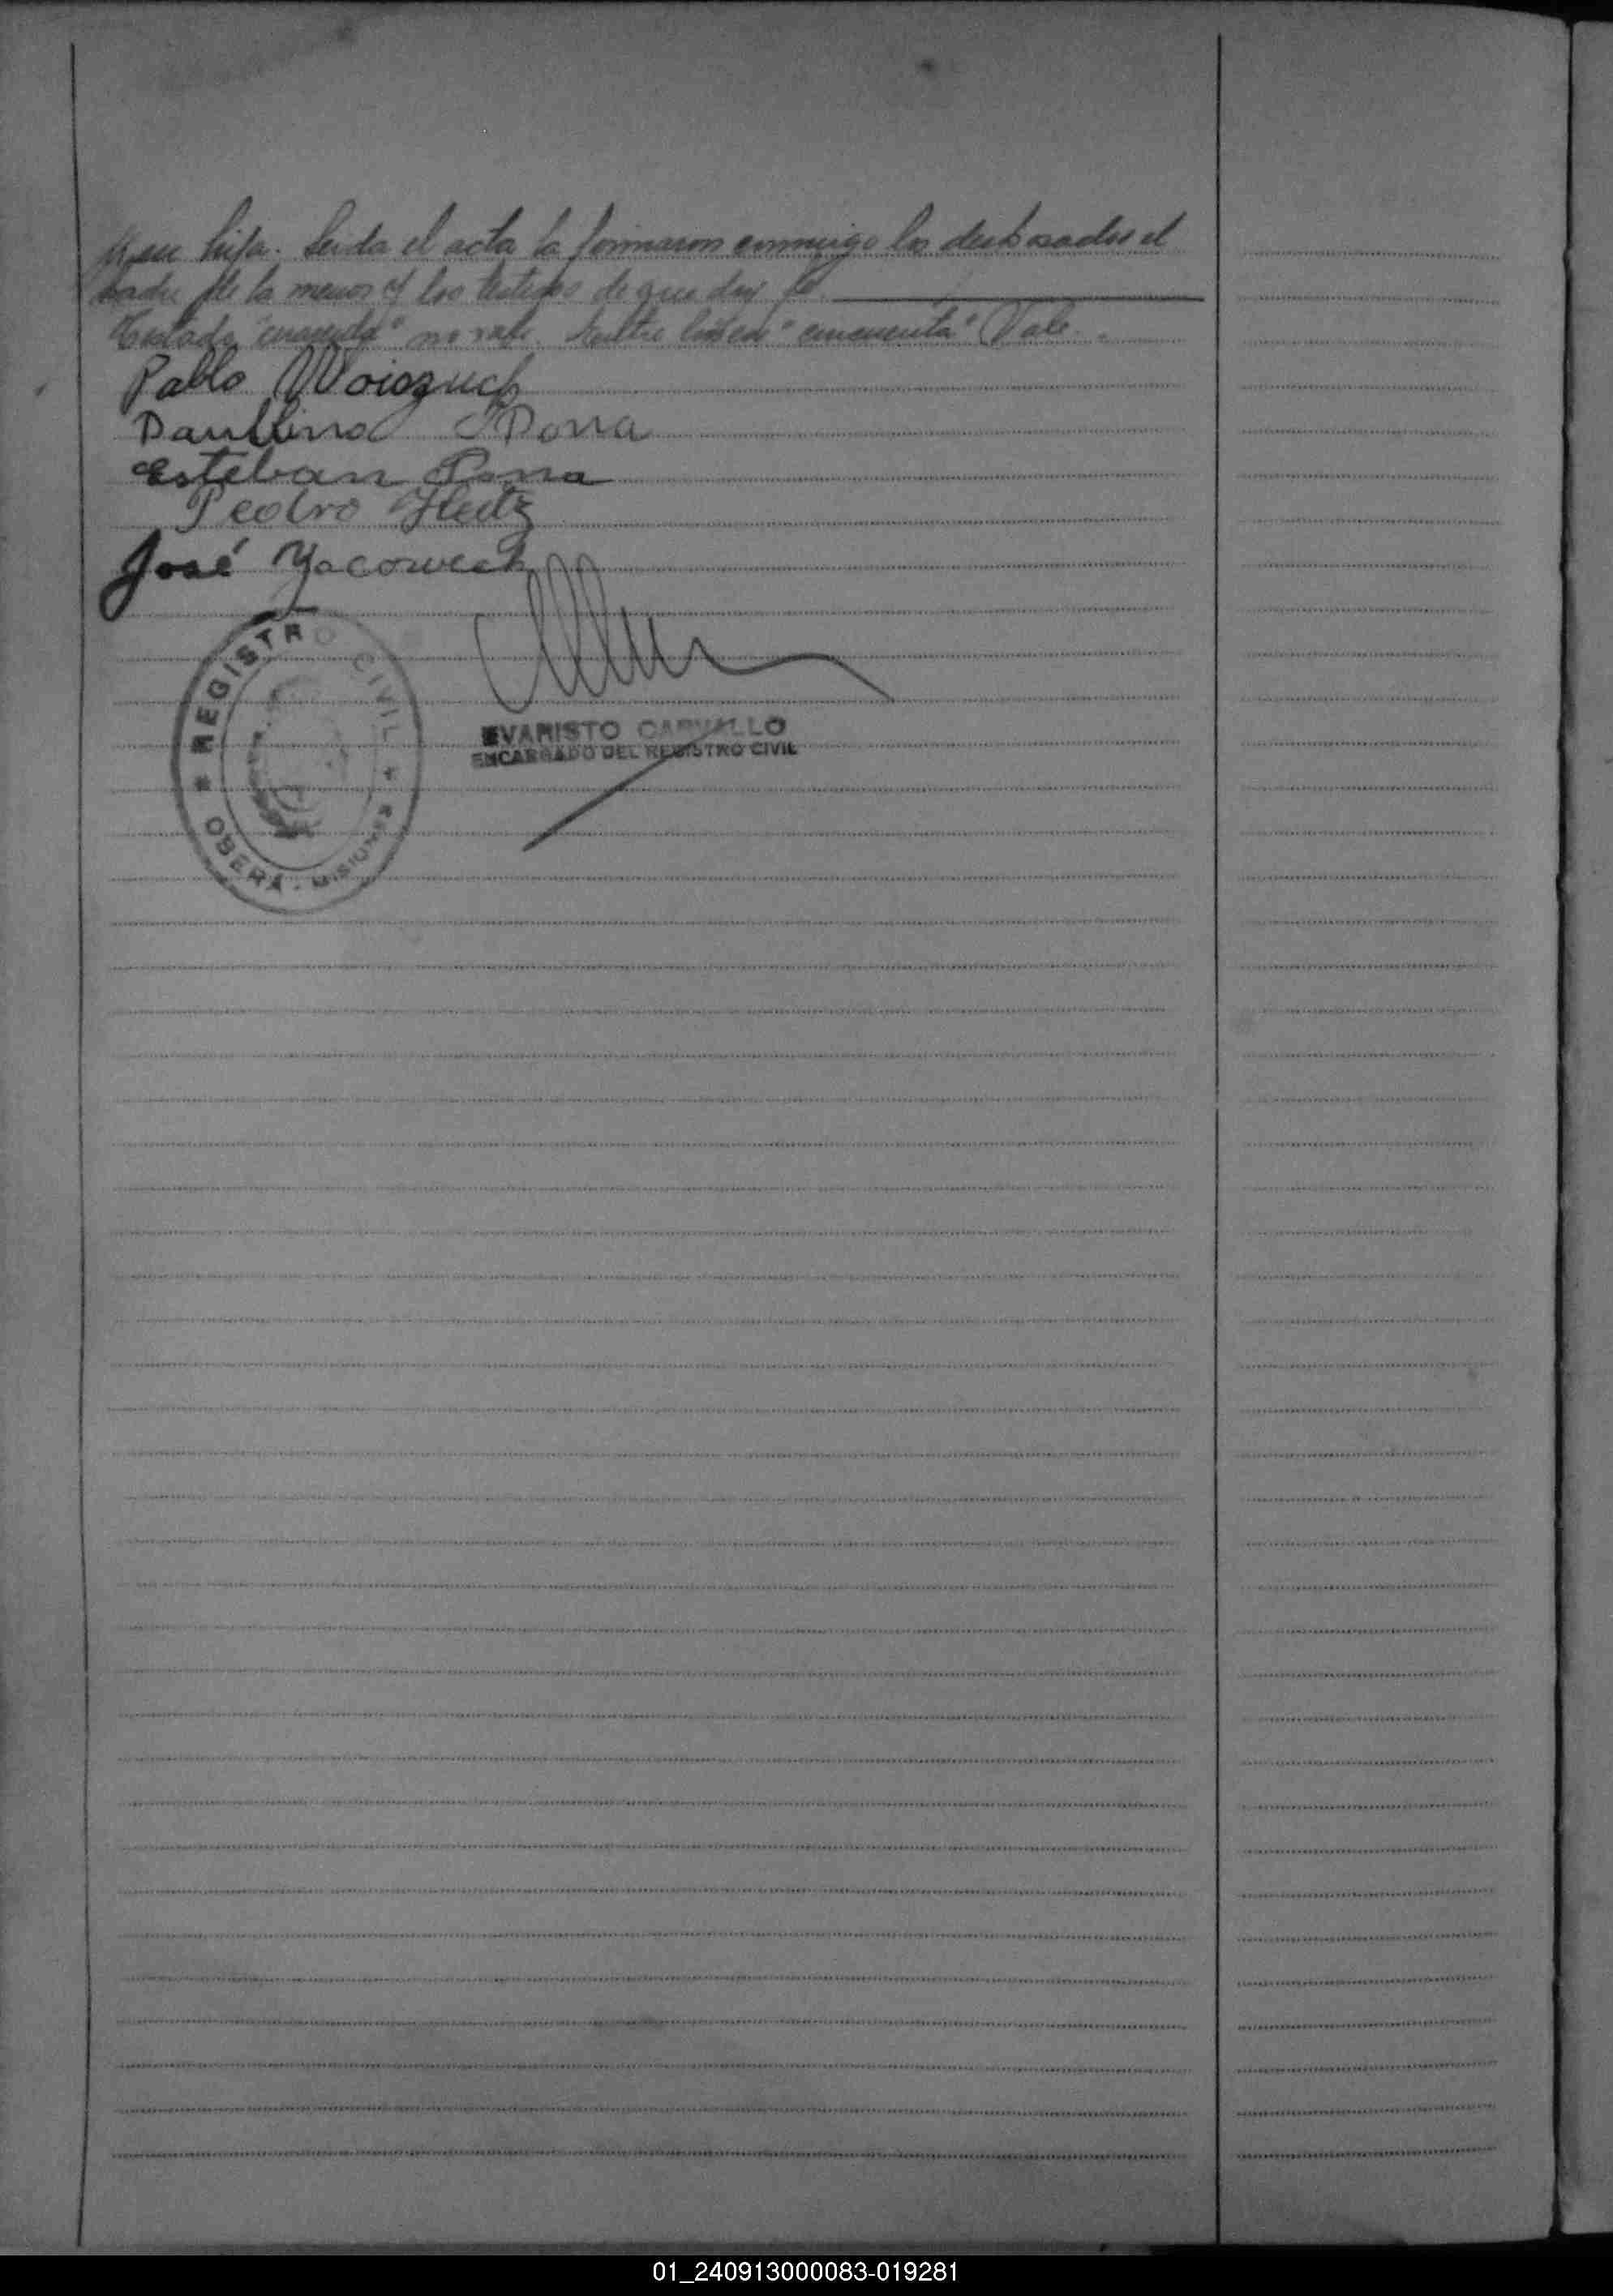 su hija. Leida el acta la firmaron conmigo los desposados el
padre de la menor y los testigos de que doy fé.
Testado "cuarenta" no vale. Entre lineas "cincuenta" Vale.
Pablo Woiozuch
Paulina Pona
Esteban Pona
Pedro
José Yacoweck
REGISTRO CIVIL
OBERÁ - MISIONES
EVARISTO CARVALLO
ENCARGADO DEL REGISTRO CIVIL
01_240913000083-019281